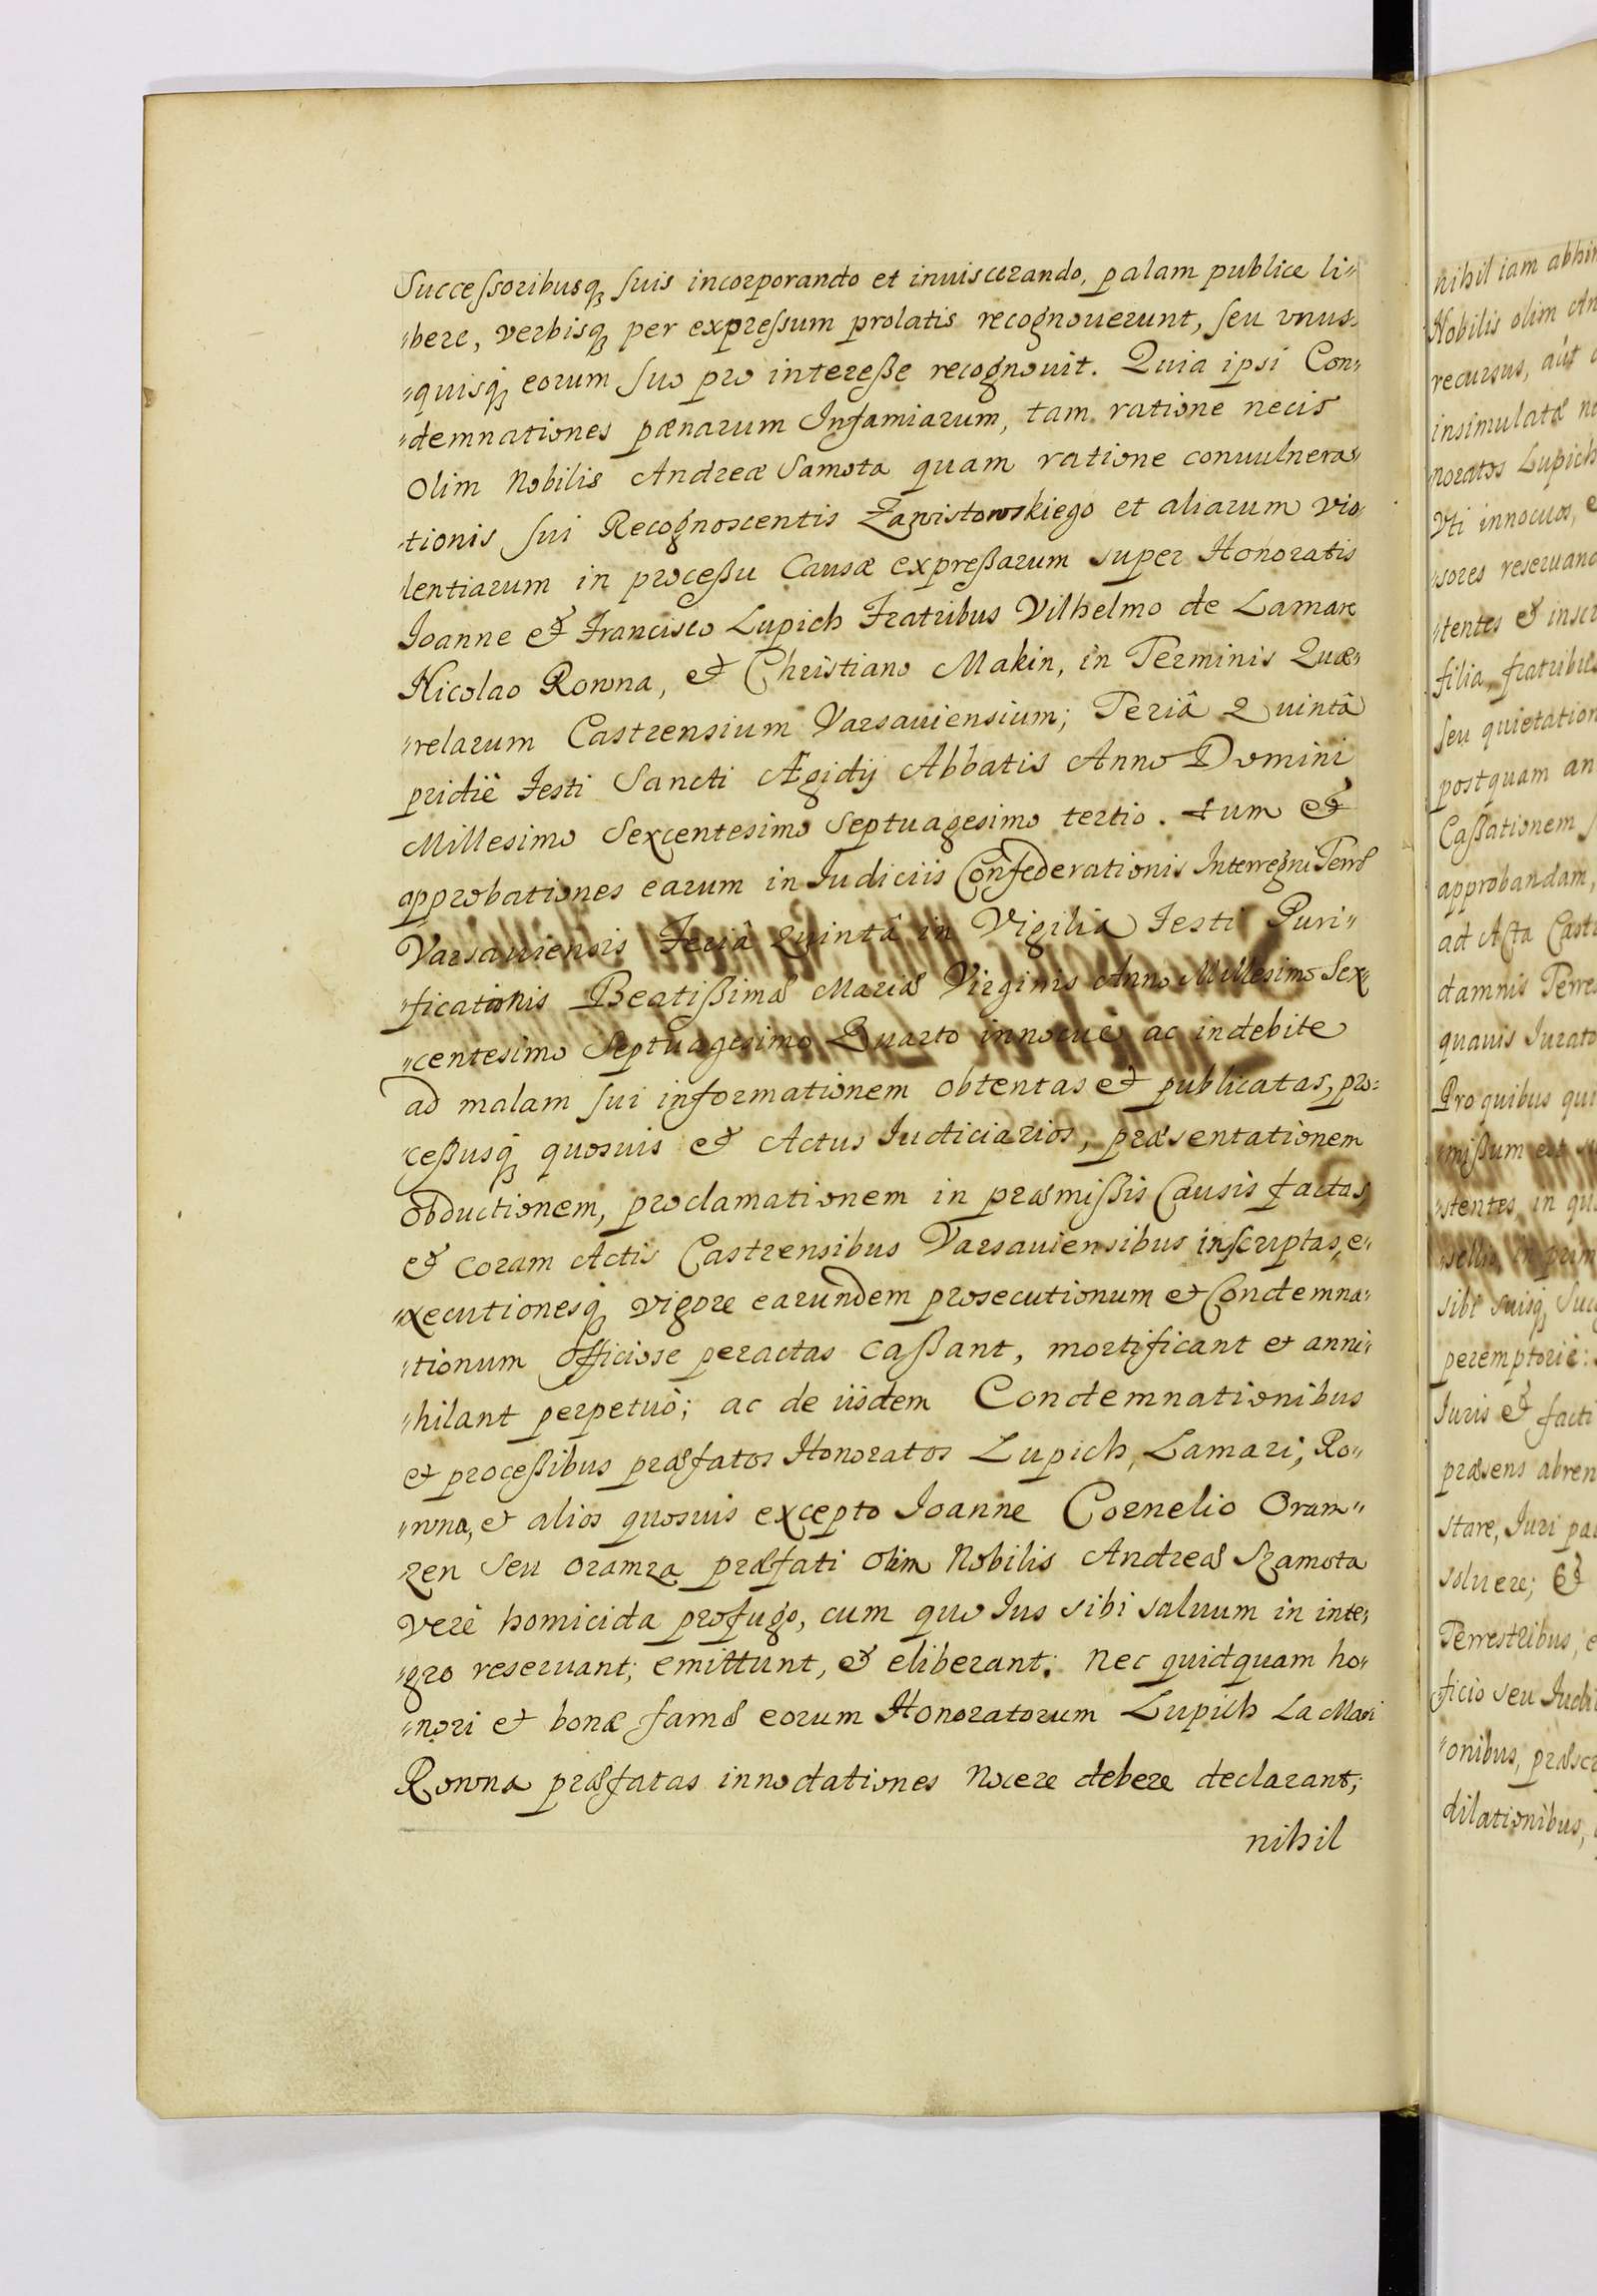 Succeſsoribusq; ſuis incorporando et inuiscerando, palam publice li„
„bere, verbisq; per expreſsum prolatis recognouerunt, ſeu vnus„
„quisq; eorum ſuo pro intereße recognouit. Quia ipsi Con„
„demnationes pænarum Infamiarum, tam ratione necis
Olim Nobilis Andreæ Samota quam ratione conuulnera„
„tionis ſui Recognoscentis Zawistowskiego et aliarum vio„
„lentiarum in proceßu Causæ expreßarum super Honoratis
Joanne & Francisco Lupich Fratribus Vilhelmo de Lamare
Nicolao Rowna, & Christiano Makin, in Terminis Quæ„
„relarum Castrensium Varsauiensium; Feriâ Quintâ
pridiè Festi Sancti Ægidij Abbatis Anno Domini
Millesimo Sexcentesimo Septuagesimo tertio. tum &
approbationes earum in Iudiciis Confederationis Interregni Terræ
Varsauiensis Feriâ Quintâ in Vigilia Festi Puri„
„ficationis Beatißimæ Mariæ Virginis Anno Millesimo Sex„
„centesimo Septuagesimo Quarto innocuè ac indebite
ad malam ſui informationem obtentas & publicatas, pro„
ceßusq; quosuis & Actus Iudiciarios, præsentationem
obductionem, proclamationem in præmißis Causis factas
& coram Actis Castrensibus Varsauiensibus inſcriptas, e„
„xecutionesq; vigore earundem prosecutionum & Condemna„
„tionum officiose peractas caßant, mortificant et anni„
„hilant perpetuò; ac de iisdem Condemnationibus
et proceßibus præfatos Honoratos Lupich, Lamari, Ro„
„wna, & alios quosuis excepto Ioanne Cornelio Oram„
ren seu oramra præfati olim Nobilis Andreæ Szamota
verè homicida profugo, cum quo Ius sibi saluum in inte„
„gro reseruant; emittunt, & eliberant; nec quidquam ho„
„nori et bonæ famæ eorum Honoratorum Lupich La Mari
Rowna præfatas innodationes nocere debere declarant;
nihil
nihil iam abhin
Nobilis olim An
recursus, aut
insimulatæ
noratos Lupich
Vti innocuos,
„sores reseruand
„tentes & inscr
filia, fratribus
ſeu quietation
postquam an
Caßationem
approbandam,
ad Acta Cast
damnis Terre
quauis Iurato
Pro quibus qui
„mißum est
„stentes, in qu
sibi suisq; Suc
peremptoriè:
Iuris & facti
præsens abren
stare, Iuri pa
soluere; &
Terrestribus,
ficio seu Iudi
„onibus, præscr
dilationibus,